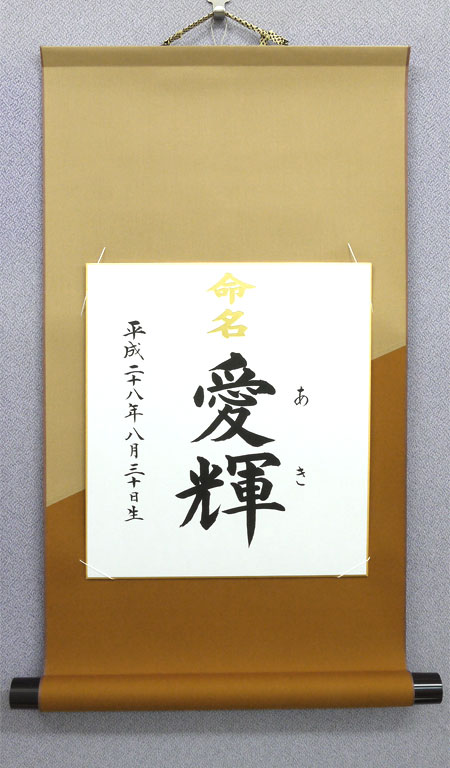 命名
愛輝
あき
平成二十八年八月三十日生